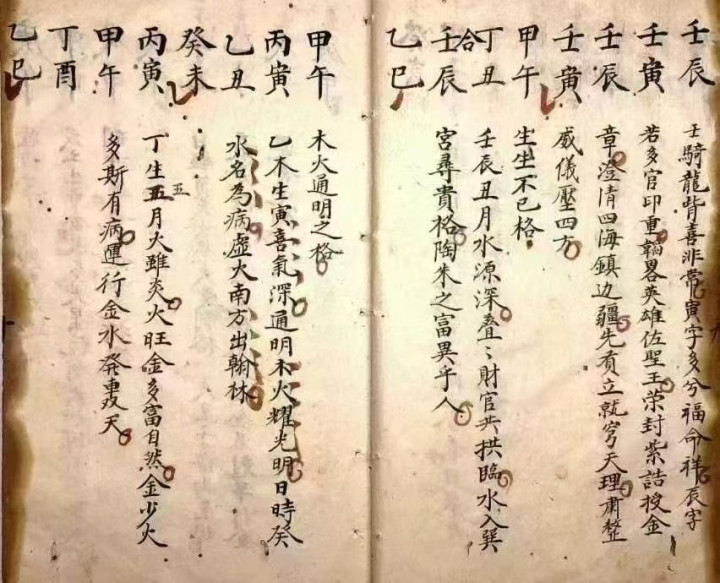 壬辰 壬騎龍背喜非常寅字多兮福命祥辰字
壬寅 若多官印重韜畧英雄佐聖王荣封紫誥授金
壬辰 章澄清四海鎮边疆先有立就穹天理肅整
壬寅 威儀壓四方
甲午 生生不已格
丁丑 壬辰丑月水源深叠〻財官共拱臨水入巽
合
壬辰 宮尋貴格陶朱之富異乎人
乙巳
甲午 木火通明之格
丙寅 乙木生寅喜氣深通明木火耀光明日時癸
乙丑 水名為病虛大南方出翰林
癸未
五
丙寅 丁生五月火雖炎火旺金多富自然金少火
甲午 多斯有病運行金水發天
丁酉
乙巳